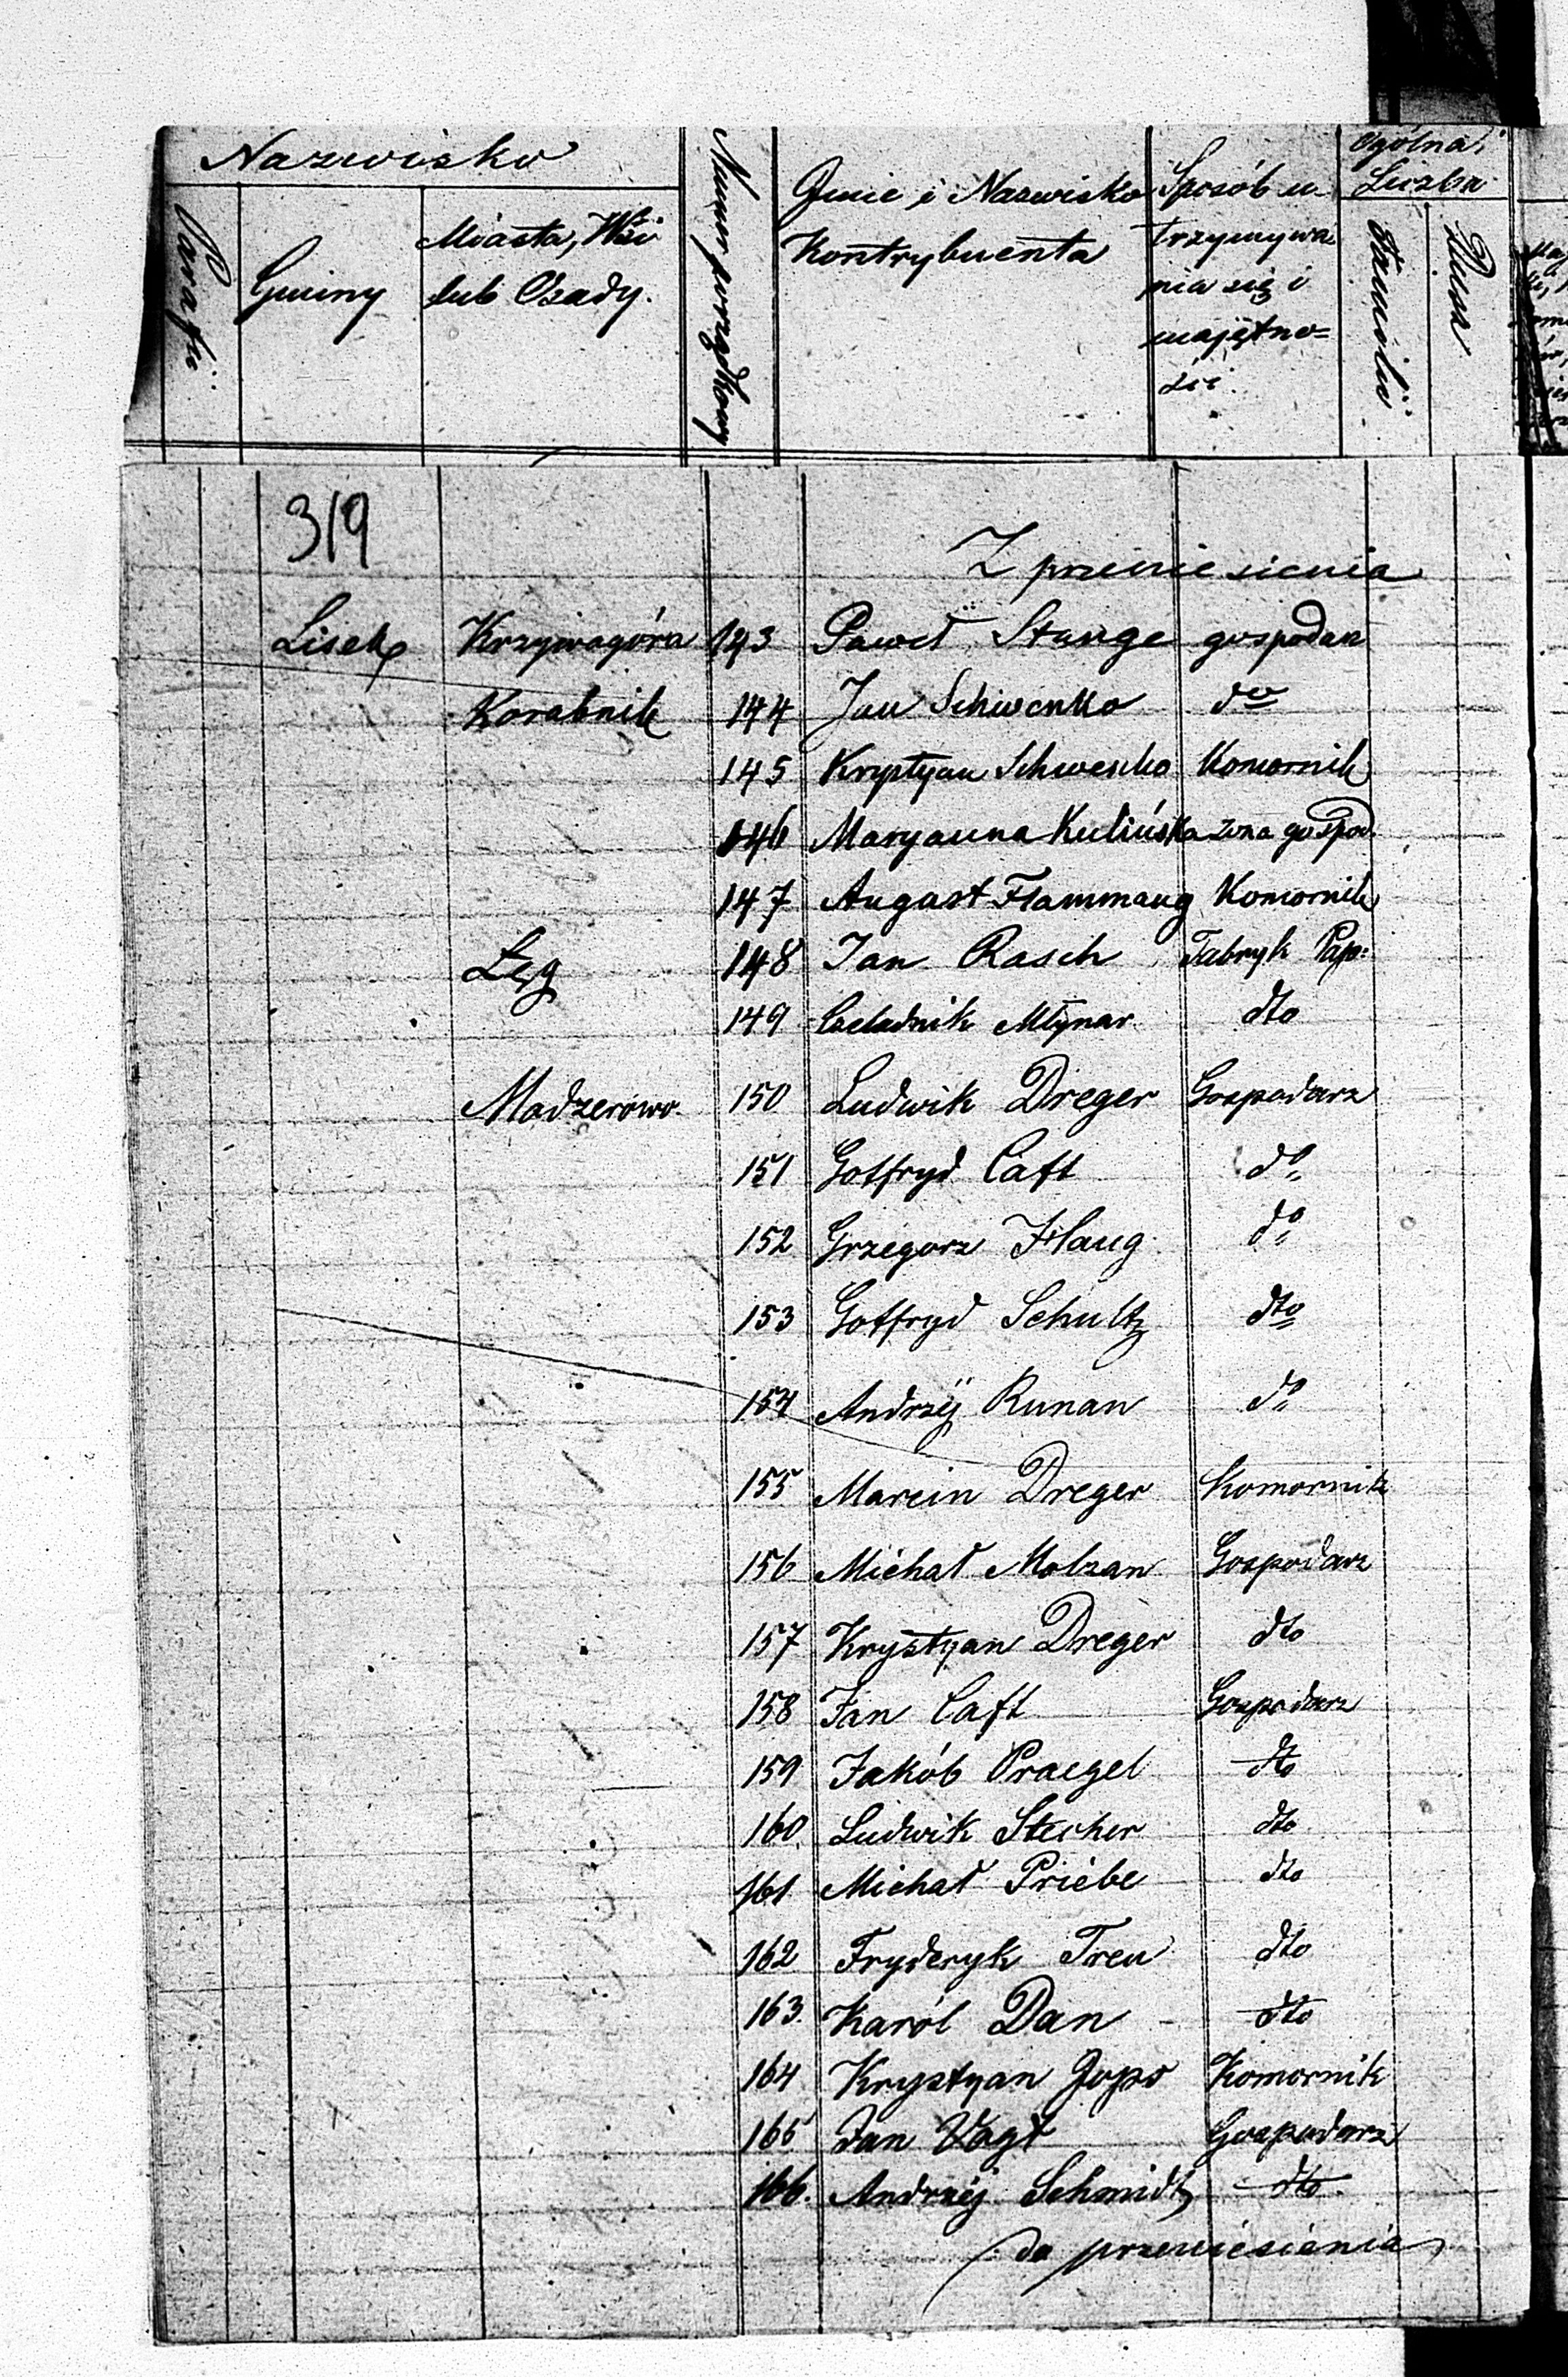 Nazwisko
Parafii
Gminy
Miasta, Wsi
lub Osady.
Numer porządkowy
Imie i Nazwisko
Kontrybuenta
Sposób u-
trzymywa
nia się i
majętno=
ści
Ogólna
Liczba
Familii
Dusz
319
Z przeniesienia
Lisek Krzywagóra 143 Paweł Stange gospodarz
Korabnik 144 Jan Schwenko do
145 Krystyan Schwenko Komornik
146 Maryanna Kulińska żona gospod.
147 August Flammang Komornik
Łęg 148 Jan Rasch Fabryk Pap:
149 Czeladnik Młynar dto
Modzerowo. 150 Ludwik Dreger Gospodarz
151 Gotfryd Caft do
152 Grzegorz Haug do
153 Gotfryd Schultz dto
154 Andrzej Runan do
155 Marcin Dreger Komornik
156 Michał Molzan Gospodarz
157 Krystyan Dreger dto
158 Jan Caft Gospodarz
159 Jakób Praegel dto
160 Ludwik Stecher dto
161 Michał Priebe dto
162 Fryderyk Treu dto
163. Karól Dan dto
164 Krystyan Jops Komornik
165 Jan Vogt Gospodarz
166. Andrzej Schmidt dto
do przeniesienia